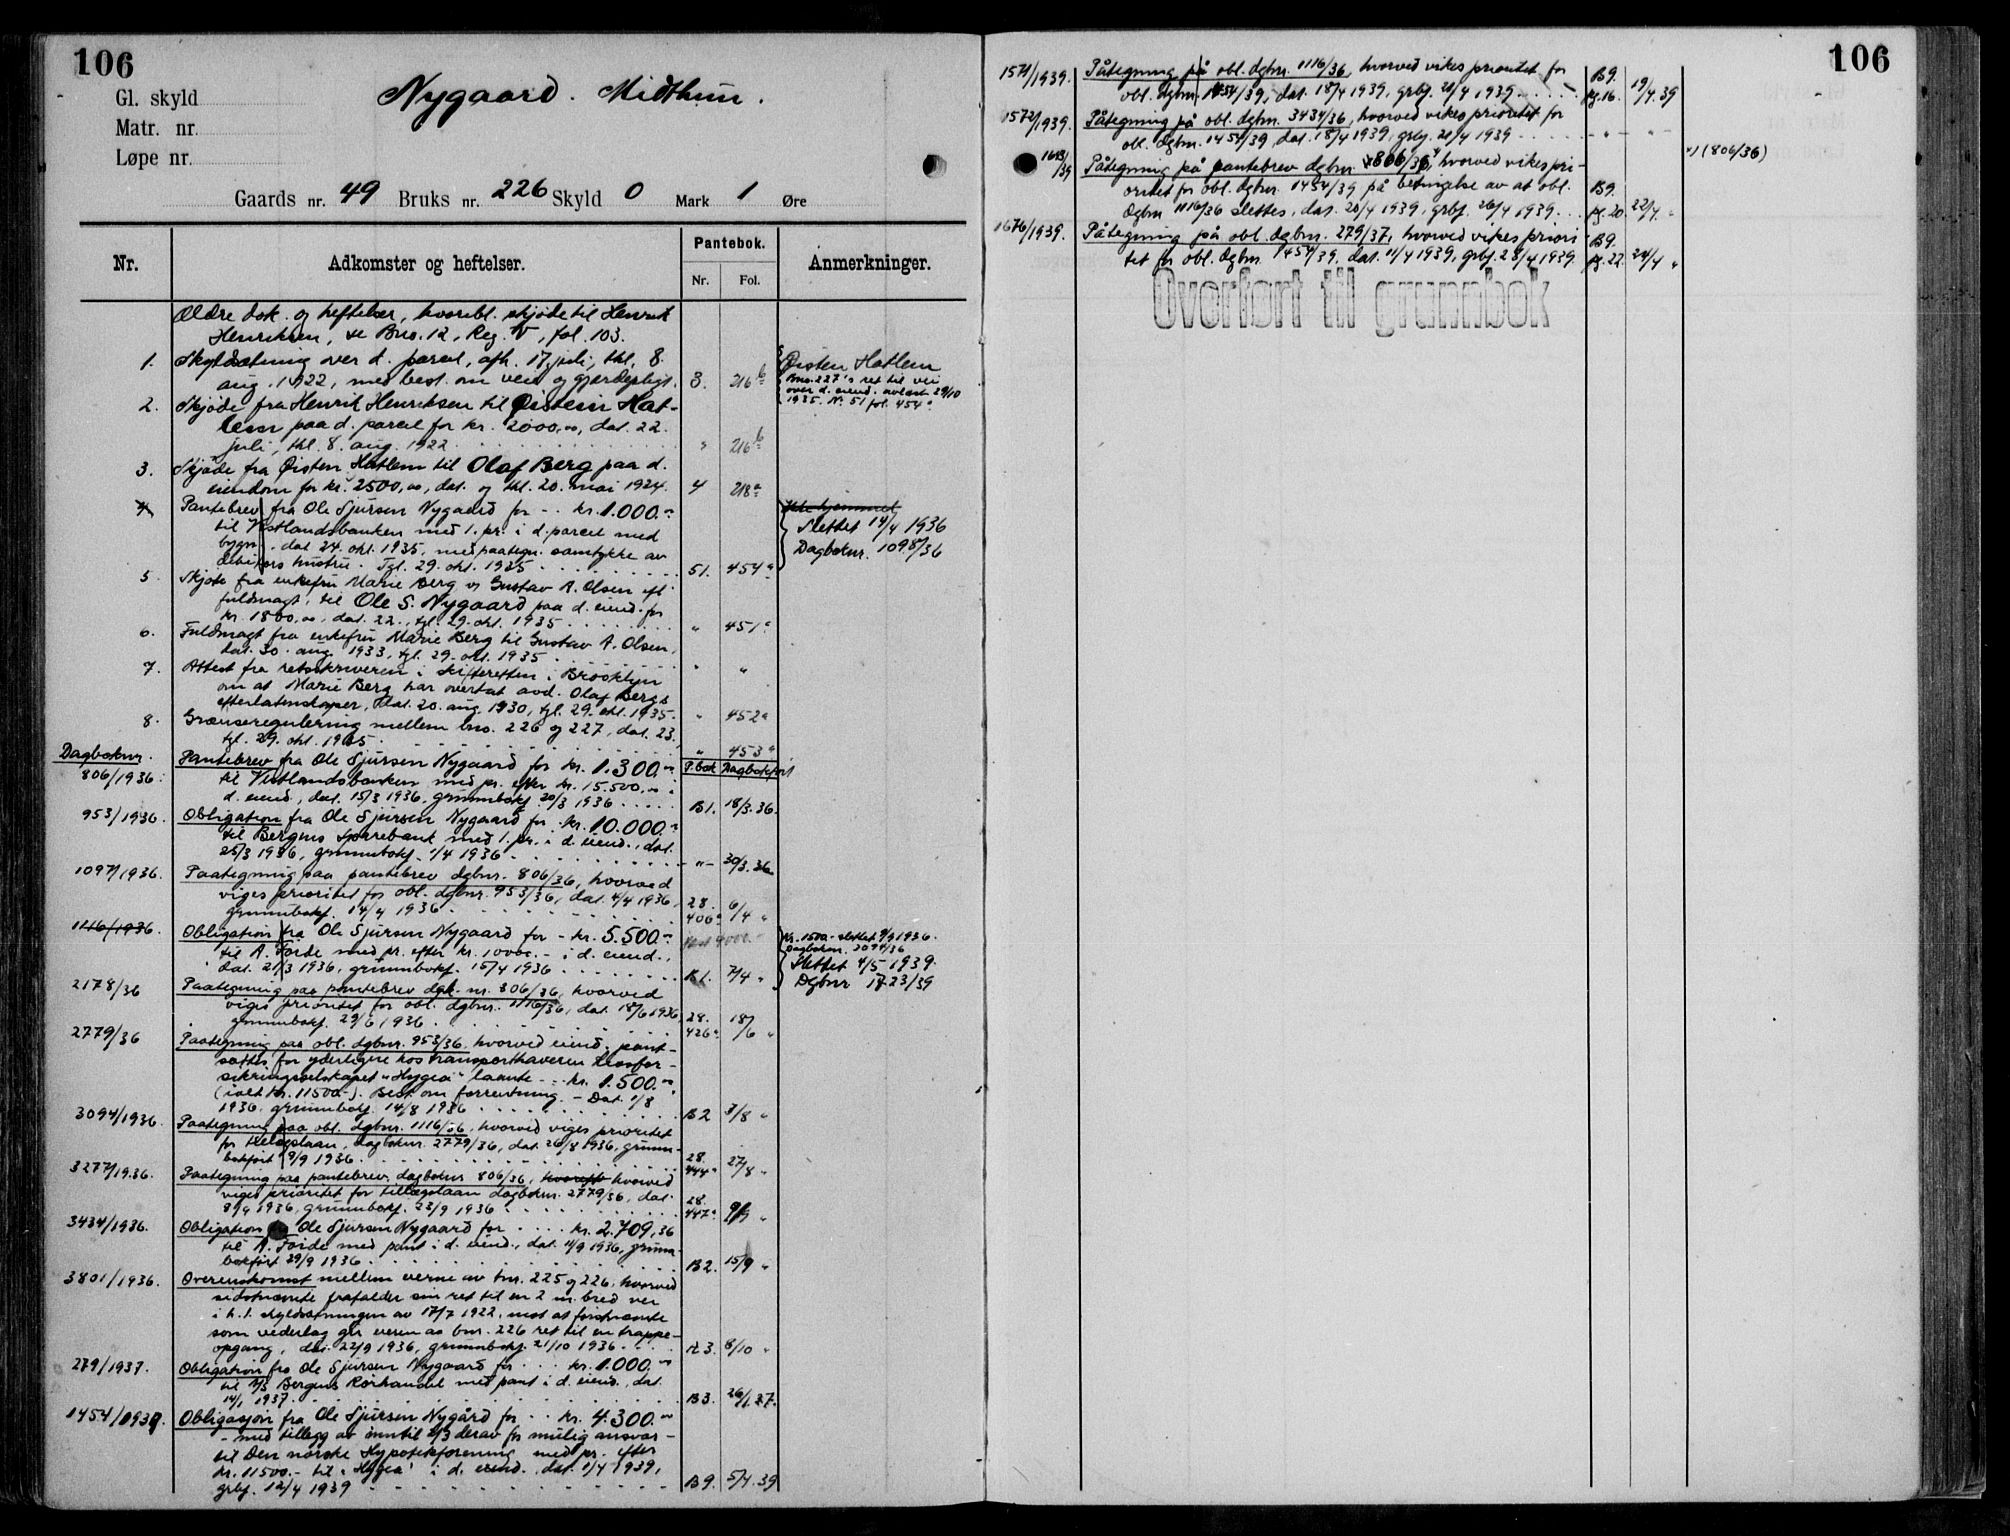 106
Nygaard. Midthun.
Gl. skyld
Matr. nr.
Løpe nr.
Gaards nr. 49 Bruks nr. 226 Skyld 0 Mark 1 Øre
Nr. Adkomster og heftelser. Pantebok. Nr. Fol. Anmerkninger.
Ældre dok. og heftelser, hvoribl. skjøde til Henrik
Henriksen, se Bno. 12, Reg. V, fol. 103.
1. Skyldsætning over d. parcel, afh. 17. juli, thl. 8.
aug. 1922, med best. om vei og gjerdepligt. 3. 216 b
2. Skjøde fra Henrik Henriksen til Øistein Hat-
lem paa d. parcel for kr. 2000,00, dat. 22.
juli, thl. 8. aug. 1922 " 216 b
3. Skjøde fra Øisten Hatlem til Olaf Berg paa d.
eiendom for kr. 2500,00, dat. og thl. 20. mai 1924. 4 218 a
4. Pantebrev fra Ole Sjursen Nygaard for - - kr. 1.000.-
til Vestlandsbanken med 1. pr. i d. parcel med
bygn., dat 24. okt. 1935, med paategn. samtykke av
debitors hustru. Tgl. 29. okt. 1935 51. 454 a
5. Skjøte fra enkefru Marie Berg v/ Gustav A. Olsen efl.
fuldmagt, til Ole S. Nygaard paa d. eiend. for
kr. 1800,00, dat. 22., tgl. 29. okt. 1935 " 451 a
6. Fuldmagt fra enkefru Marie Berg til Gustav A. Olsen,
dat. 30. aug. 1933, tgl. 29. okt. 1935 " "
7. Attest fra retsskriveren i skifteretten i Brooklyn
om at Marie Berg har overtat avd. Olaf Bergs
efterlatenskaper, dat. 20. aug. 1930, tgl. 29. okt. 1935. " 452 a
8. Grænseregulering mellem bno. 226 og 227, dat. 23.,
tgl. 29. okt. 1935 " 453 a
Øisten Hatlem
Bno. 227's ret til vei
over d. eiend. avløst 29/10
1935. N. 51 fol. 454 a
Ikke hjemmel
Slettet 14/4 1936
Dagboknr. 1098/36
Dagboknr. P.bok Dagbokført
806/1936: Pantebrev fra Ole Sjursen Nygaard for kr. 1.300.-
til Vestlandsbanken med pr. efter kr. 15.500,00 i
d. eiend., dat. 15/3 1936, grunnbokf. 20/3 1936 B1. 18/3.36.
953/1936. Obligation fra Ole Sjursen Nygaard for kr. 10.000.-
til Bergens Sparebank med 1. pr. i d. eiend., dat.
25/3 1936, grunnbokf. 1/4 1936 - " - 30/3.36
1097/1936. Paategning paa pantebrev dgbnr. 806/36, hvorved
viges prioritet for obl. dgbnr. 953/36, dat. 4/4 1936,
grunnbokf. 14/4 1936 28. 406 a 6/4 "
1116/1936. Obligation fra Ole Sjursen Nygaard for - kr. 5.500.-
til A. Førde med pr. efter kr. 10000.- i d. eiend.,
dat. 27/3 1936, grunnbokf. 15/4 1936 B1. 7/4 "
Kr. 1500.- slettet 9/9 1936.
Dagboknr. 3094/36
Slettet 4/5 1939.
Dgbnr 1723/39
2178/36 Paategning paa pantebrev dgb. nr. 806/36, hvorved
viges prioritet for obl. dgbnr. 1116/36, dat. 18/6 1936,
grunnbokf. 29/6 1936 28. 426 a 18/6 "
2779/36 Paategning paa obl. dgbnr. 953/36, hvorved eiend. pant-
sættes for yderligere hos transporthaveren livsfor-
sikringsselskapet "Hygea" laante - - kr. 1.500.-
(ialt kr. 11500.-). Best. om forrentning. - Dat. 1/8
1936. grunnbokf. 14/8 1936 B2 3/8 "
3094/1936. Paategning paa obl. dgbnr. 1116/36, hvorved viges prioritet
for tillægslaan, dagboknr. 2779/36, dat. 26/8 1936, grunn-
bokført 9/9 1936 28. 444 a 27/8 "
3277/1936. Paategning paa pantebrev, dagboknr 806/36, hvorved
viges prioritet for tillægslaan dagboknr. 2779/36, dat.
8/9 1936, grunnbokf. 23/9 1936 28. 447 a 9/9 "
3434/1936. Obligation Ole Sjursen Nygaard for - - kr. 2.709,36
til A. Førde med pant i d. eiend., dat. 11/9 1936, grunn-
bokført 29/9 1936 B2. 15/9 "
3801/1936. Overenskomst mellem eierne av bnr. 225 og 226, hvorved
sidstnævnte frafalder sin ret til en 2 m. bred vei
i h. t. skyldsætningen av 17/7 1922, mot at førstnævnte
som vederlag gir eieren av bnr. 226 ret til en trappe-
opgang, dat. 22/9 1936, grunnbokf. 21/10 1936 A3. 8/10 "
279/1937. Obligation fra Ole Sjursen Nygaard for - - kr. 1.000.-
til A/S Bergens Rørhandel med pant i d. eiend., dat.
14/1 1937 B3. 26/1.37.
1454/1939. Obligasjon fra Ole Sjursen Nygård for - - kr. 4.300.-
- med tillegg av inntil 2/3 derav for mulig ansvar -
til Den norske Hypotekforening med pr. efter
kr. 11500.- til "Hygea" i d. eiend., dat. 1/4 1939,
grbf. 12/4 1939 B9. 5/4.39
106
1571/1939. Påtegning på obl. dgbnr. 1116/36, hvorved vikes prioritet for
obl. dgbnr. 1454/39, dat. 18/4 1939, grbf. 21/4 1939 B9. pg. 16. 19/4.39
1572/1939. Påtegning på obl. dgbnr. 3434/36, hvorved vikes prioritet for
obl. dgbnr. 1454/39, dat. 18/4 1939, grbf. 21/4 1939 - " - - " -
1613/39 Påtegning på pantebrev dgbnr. 806/36, hvorved vikes pri-
oritet for obl. dgbnr. 1454/39 på betingelse av at obl.
dgbnr 1116/36 slettes, dat. 20/4 1939, grbf. 26/4 1939. B9. pg. 20. 22/4. "
*) (806/36)
1676/1939. Påtegning på obl. dgbnr. 279/37, hvorved vikes priori-
tet for obl. dgbnr. 1454/39, dat. 11/4 1939, grbf. 28/4 1939. B9. pg. 22. 24/4 "
Overført til grunnbok